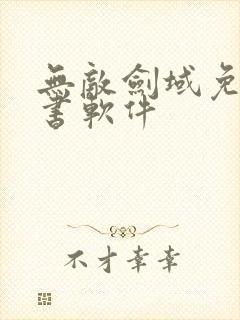 無敵劍域免
書軟件
不才幸幸